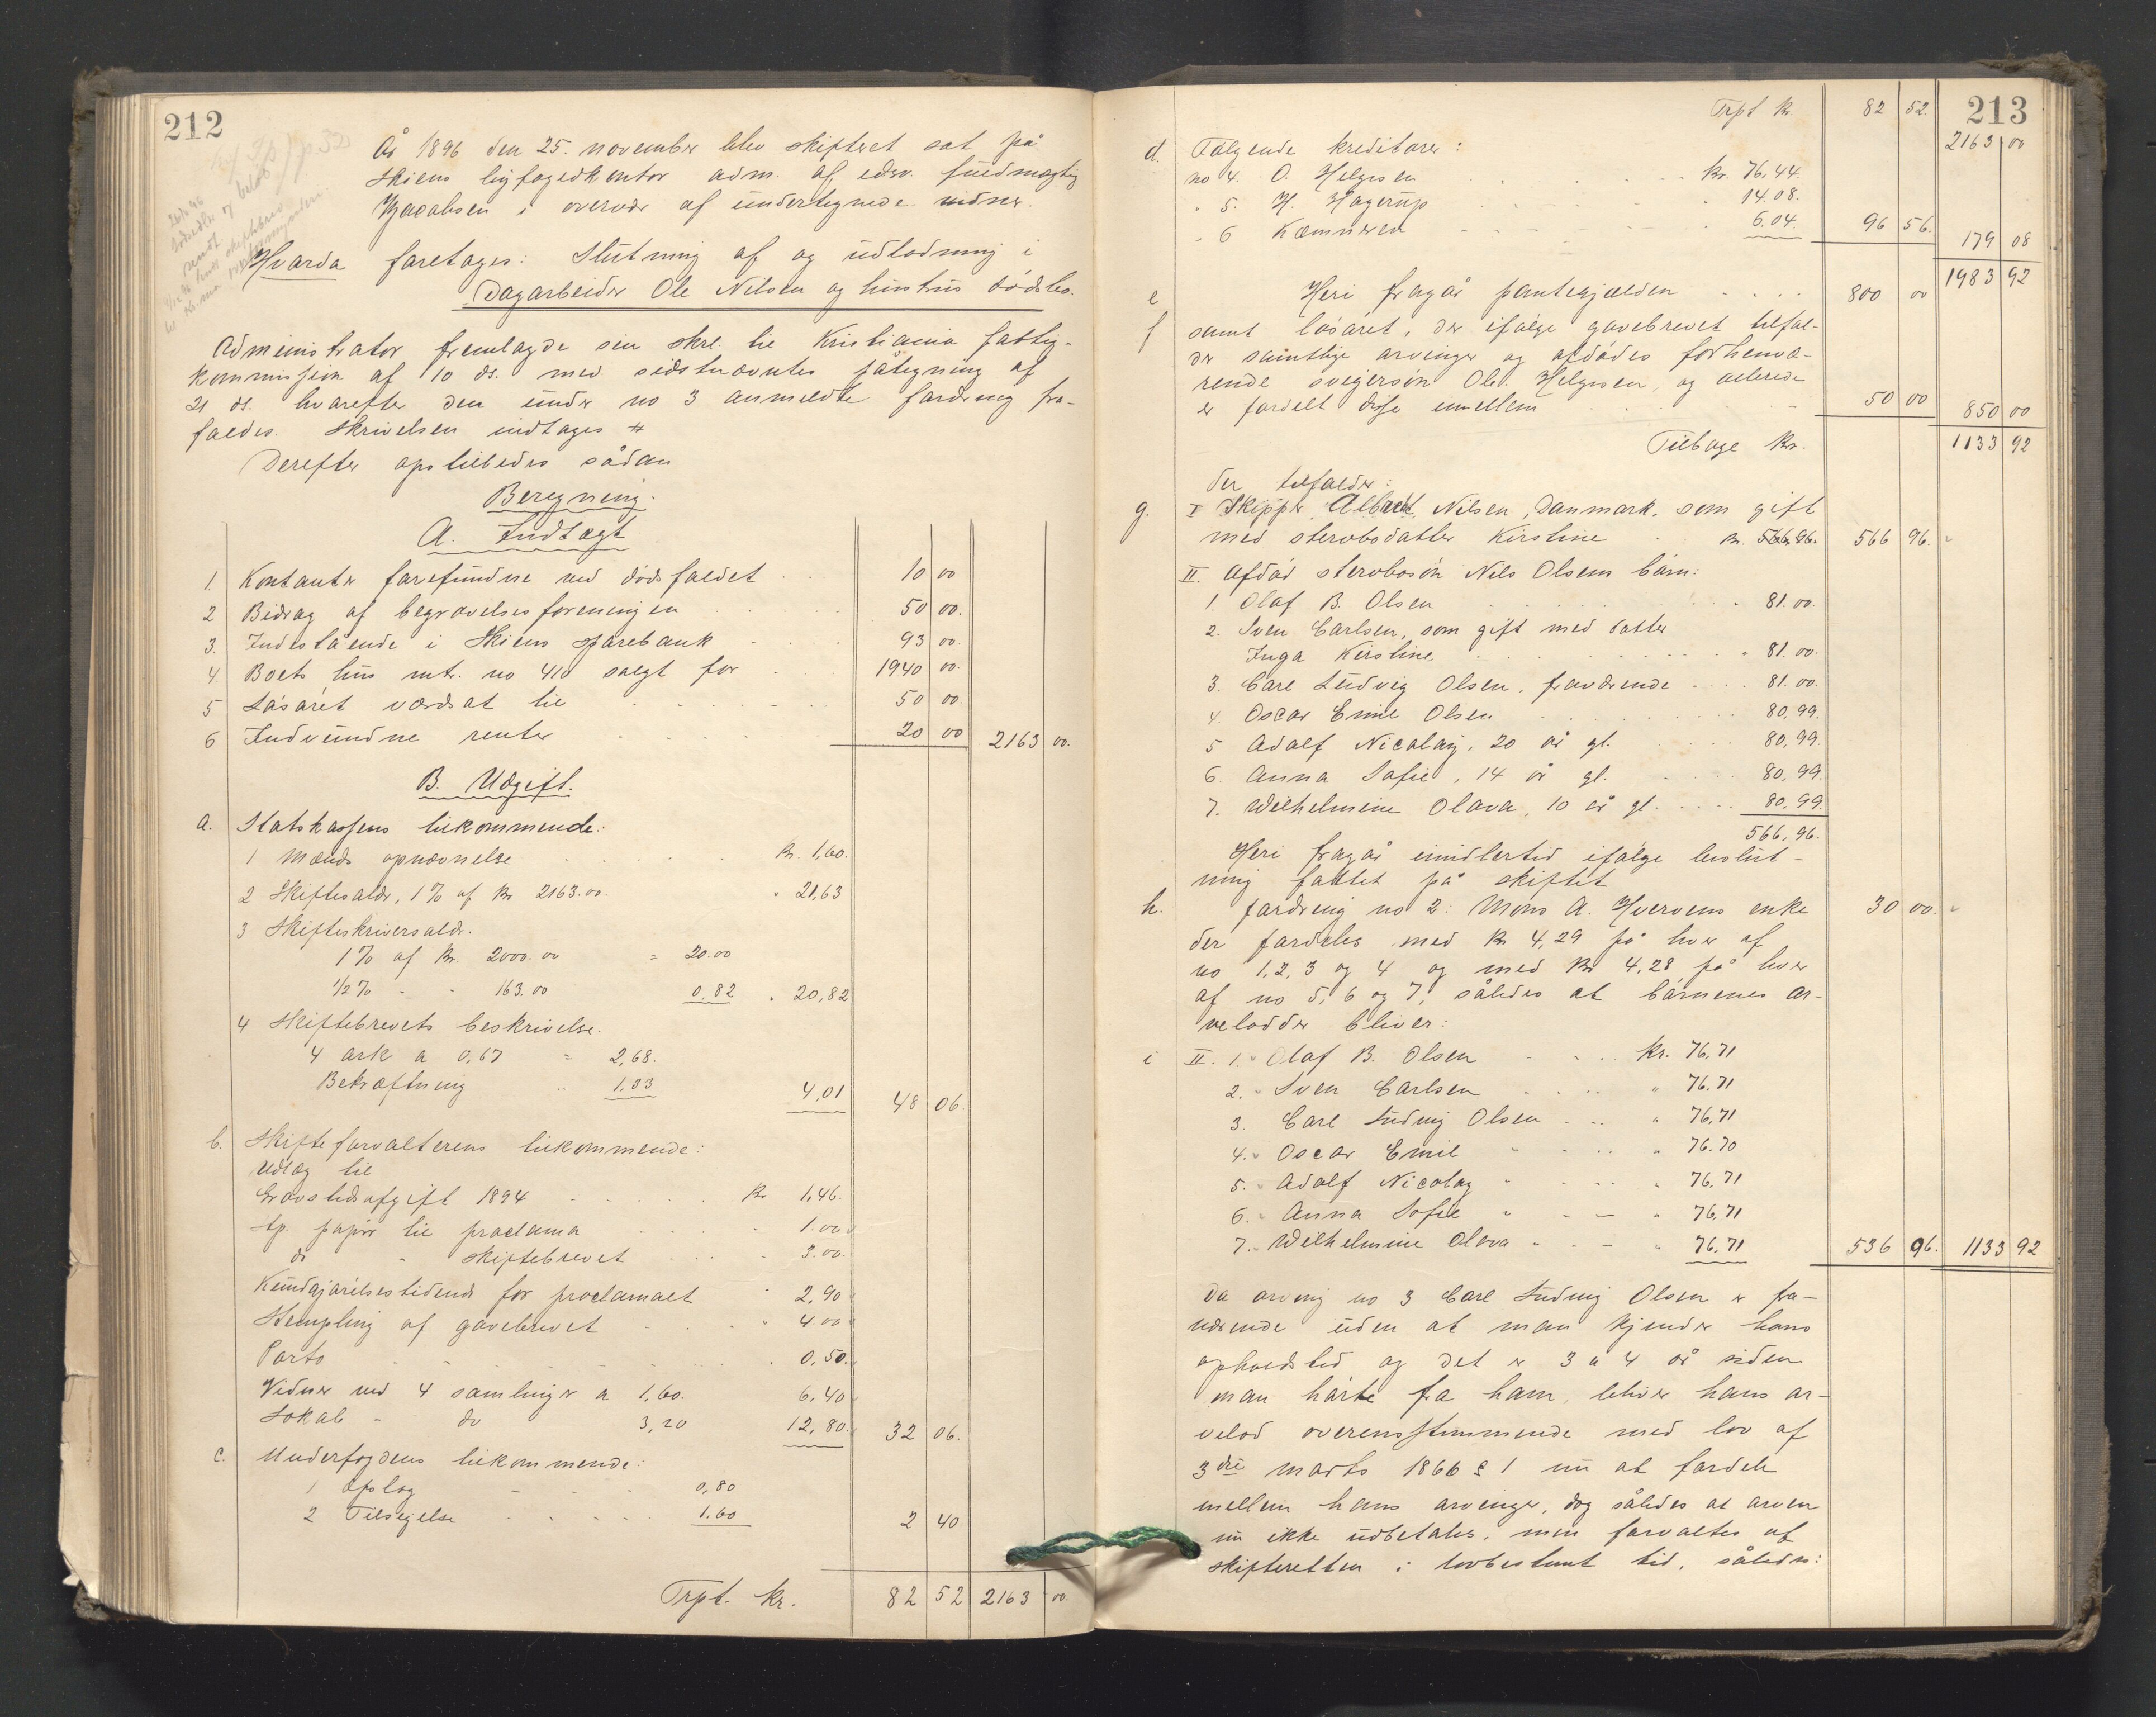 212
År 1896 den 25. november blev skifteret sat på
Skiens byfogedkontor adm. af edsv. fuldmægtig
Jacobsen i overvær af undertegnede vidner.
Hvorda foretages: Slutning af og udlodning i
Dagarbeider Ole Nilsen og hustrus dødsbo.
Administrator fremlagde sin skr. til Kristiania fattig-
kommission af 10 ds. med sidstnævntes påtegning af
21 ds. hvorefter den under no 3 anmeldte fordring fra-
faldes. Skrivelsen indtages #
Derefter opstilledes sådan
Beregning.
A. Indtægt
1. Kontanter forefundne ved dødsfaldet 10 00
2 Bidrag af begravelsesforeningen 50 00.
3. Indestående i Skiens sparebank 93 00.
4. Boets hus mtr. no 410 solgt for 1940 00.
5 Løsøret værdsat til 50 00
6 Indvundne renter 20 00 2163 00.
B. Udgift.
a. Statskassens tilkommende:
1 Mænds opnævnelse Kr. 1,60.
2 Skiftesaldr, 1% af Kr 2163.00. " 21,63
3 Skifteskriversaldr.
1% af Kr. 2000.00 = 20.00
1/2% - - 163.00 0,82 " 20,82
4 Skiftebrevets beskrivelse.
4 ark a 0,67 = 2,68.
Bekræftning " 1,33 4,01 48 06.
b. Skifteforvalterens tilkommende:
Udlæg til
Gravstedsafgift 1894 Kr 1,46.
st. papir til proclama - 1.00
do - skiftebrevet - 3.00.
Kundgjørelsestidende for proclamaet " 2,90
Stempling af gavebrevet " 4.00
Porto 0,50.
Vidner ved 4 samlinger a 1,60. 6,40
Lokale - do 3,20 12,80. 32 06.
c. Underfogdens tilkommende:
1 Opslag 0,80
2 Tilsigelse 1.60 2 40
Trpt. kr. 82 52 2163 00.
213
Trpt kr. 82 52.
2163 00
d. Følgende kreditorer:
no 4. O. Helgesen kr. 76,44.
" 5. H. Hagerup " 14.08.
" 6 Kæmneren 6.04. 96 56. 179 08
1983 92
e Heri fragår pantegjælden 800 00
f samt løsøret, der ifølge gavebrevet tilfal-
der samtlige arvinger og afdødes forhenvæ-
rende svigersøn Ole Helgesen, og allerede
er fordelt disse imellem 50 00 850 00
Tilbage Kr. 1133 92
der tilfalder:
g. I Skipper Albret Nilsen, Danmark, som gift
med stervbodatter Kirstine kr. 566,96. 566 96.
II. Afdød stervbosøn Nils Olsens børn:
1. Olaf B. Olsen " 81.00.
2. Sven Carlsen, som gift med datter
Inga Kirstine " 81.00.
3. Carl Ludvig Olsen, fraværende 81.00.
4. Oscar Emil Olsen 80,99.
5 Adolf Nicolay, 20 år gl. 80,99.
6. Anna Sofie, 14 år gl. 80,99.
7. Wilhelmine Olava, 10 år gl. 80,99.
566,96.
Heri fragår imidlertid ifølge beslut-
ning fattet på skiftet
h. fordring no 2: Mons A. Hvervens enke 30 00.
der fordeles med Kr 4,29 på hver af
no 1, 2, 3 og 4 og med Kr 4,28 på hver
af no 5, 6 og 7, således at børnenes ar-
velodder bliver:
i II. 1. Olaf B. Olsen Kr. 76,71
2. Sven Carlsen " 76.71
3. Carl Ludvig Olsen " 76,71
4. Oscar Emil " 76.70
5. Adolf Nicolay " 76,71
6. Anna Sofie " 76,71
7. Wilhelmine Olava " 76.71 536 96. 1133 92
Da arving no 3 Carl Ludvig Olsen er fra-
værende uden at man kjender hans
opholdsted og det er 3 a 4 år siden
man hørte fra ham, bliver hans ar-
velod overensstemmende med lov af
3die marts 1866 § 1 nu at fordele
mellem hans arvinger, dog således at arven
nu ikke udbetales, men forvaltes af
skifteretten i lovbestemt tid, således: